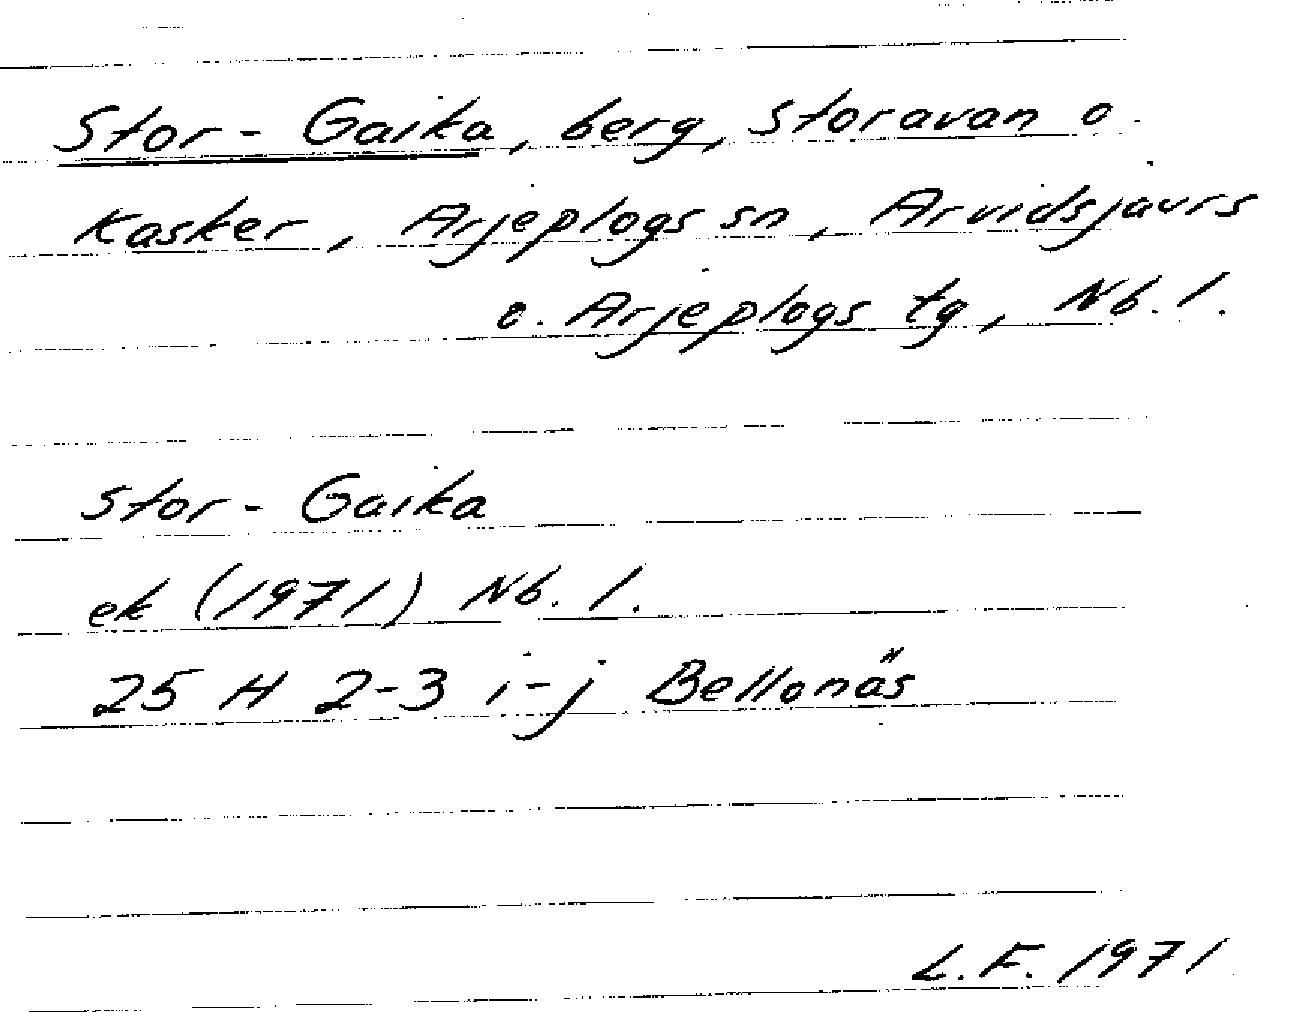 Stor-Gaika, berg, Storavan o.
Kasker, Arjeplogs sn, Arvidsjaurs
o. Arjeplogs tg, Nb. l.
Stor-Gaika
ek (1971) Nb. l.
25 H 2-3 i-j Bellonäs
L.F. 1971